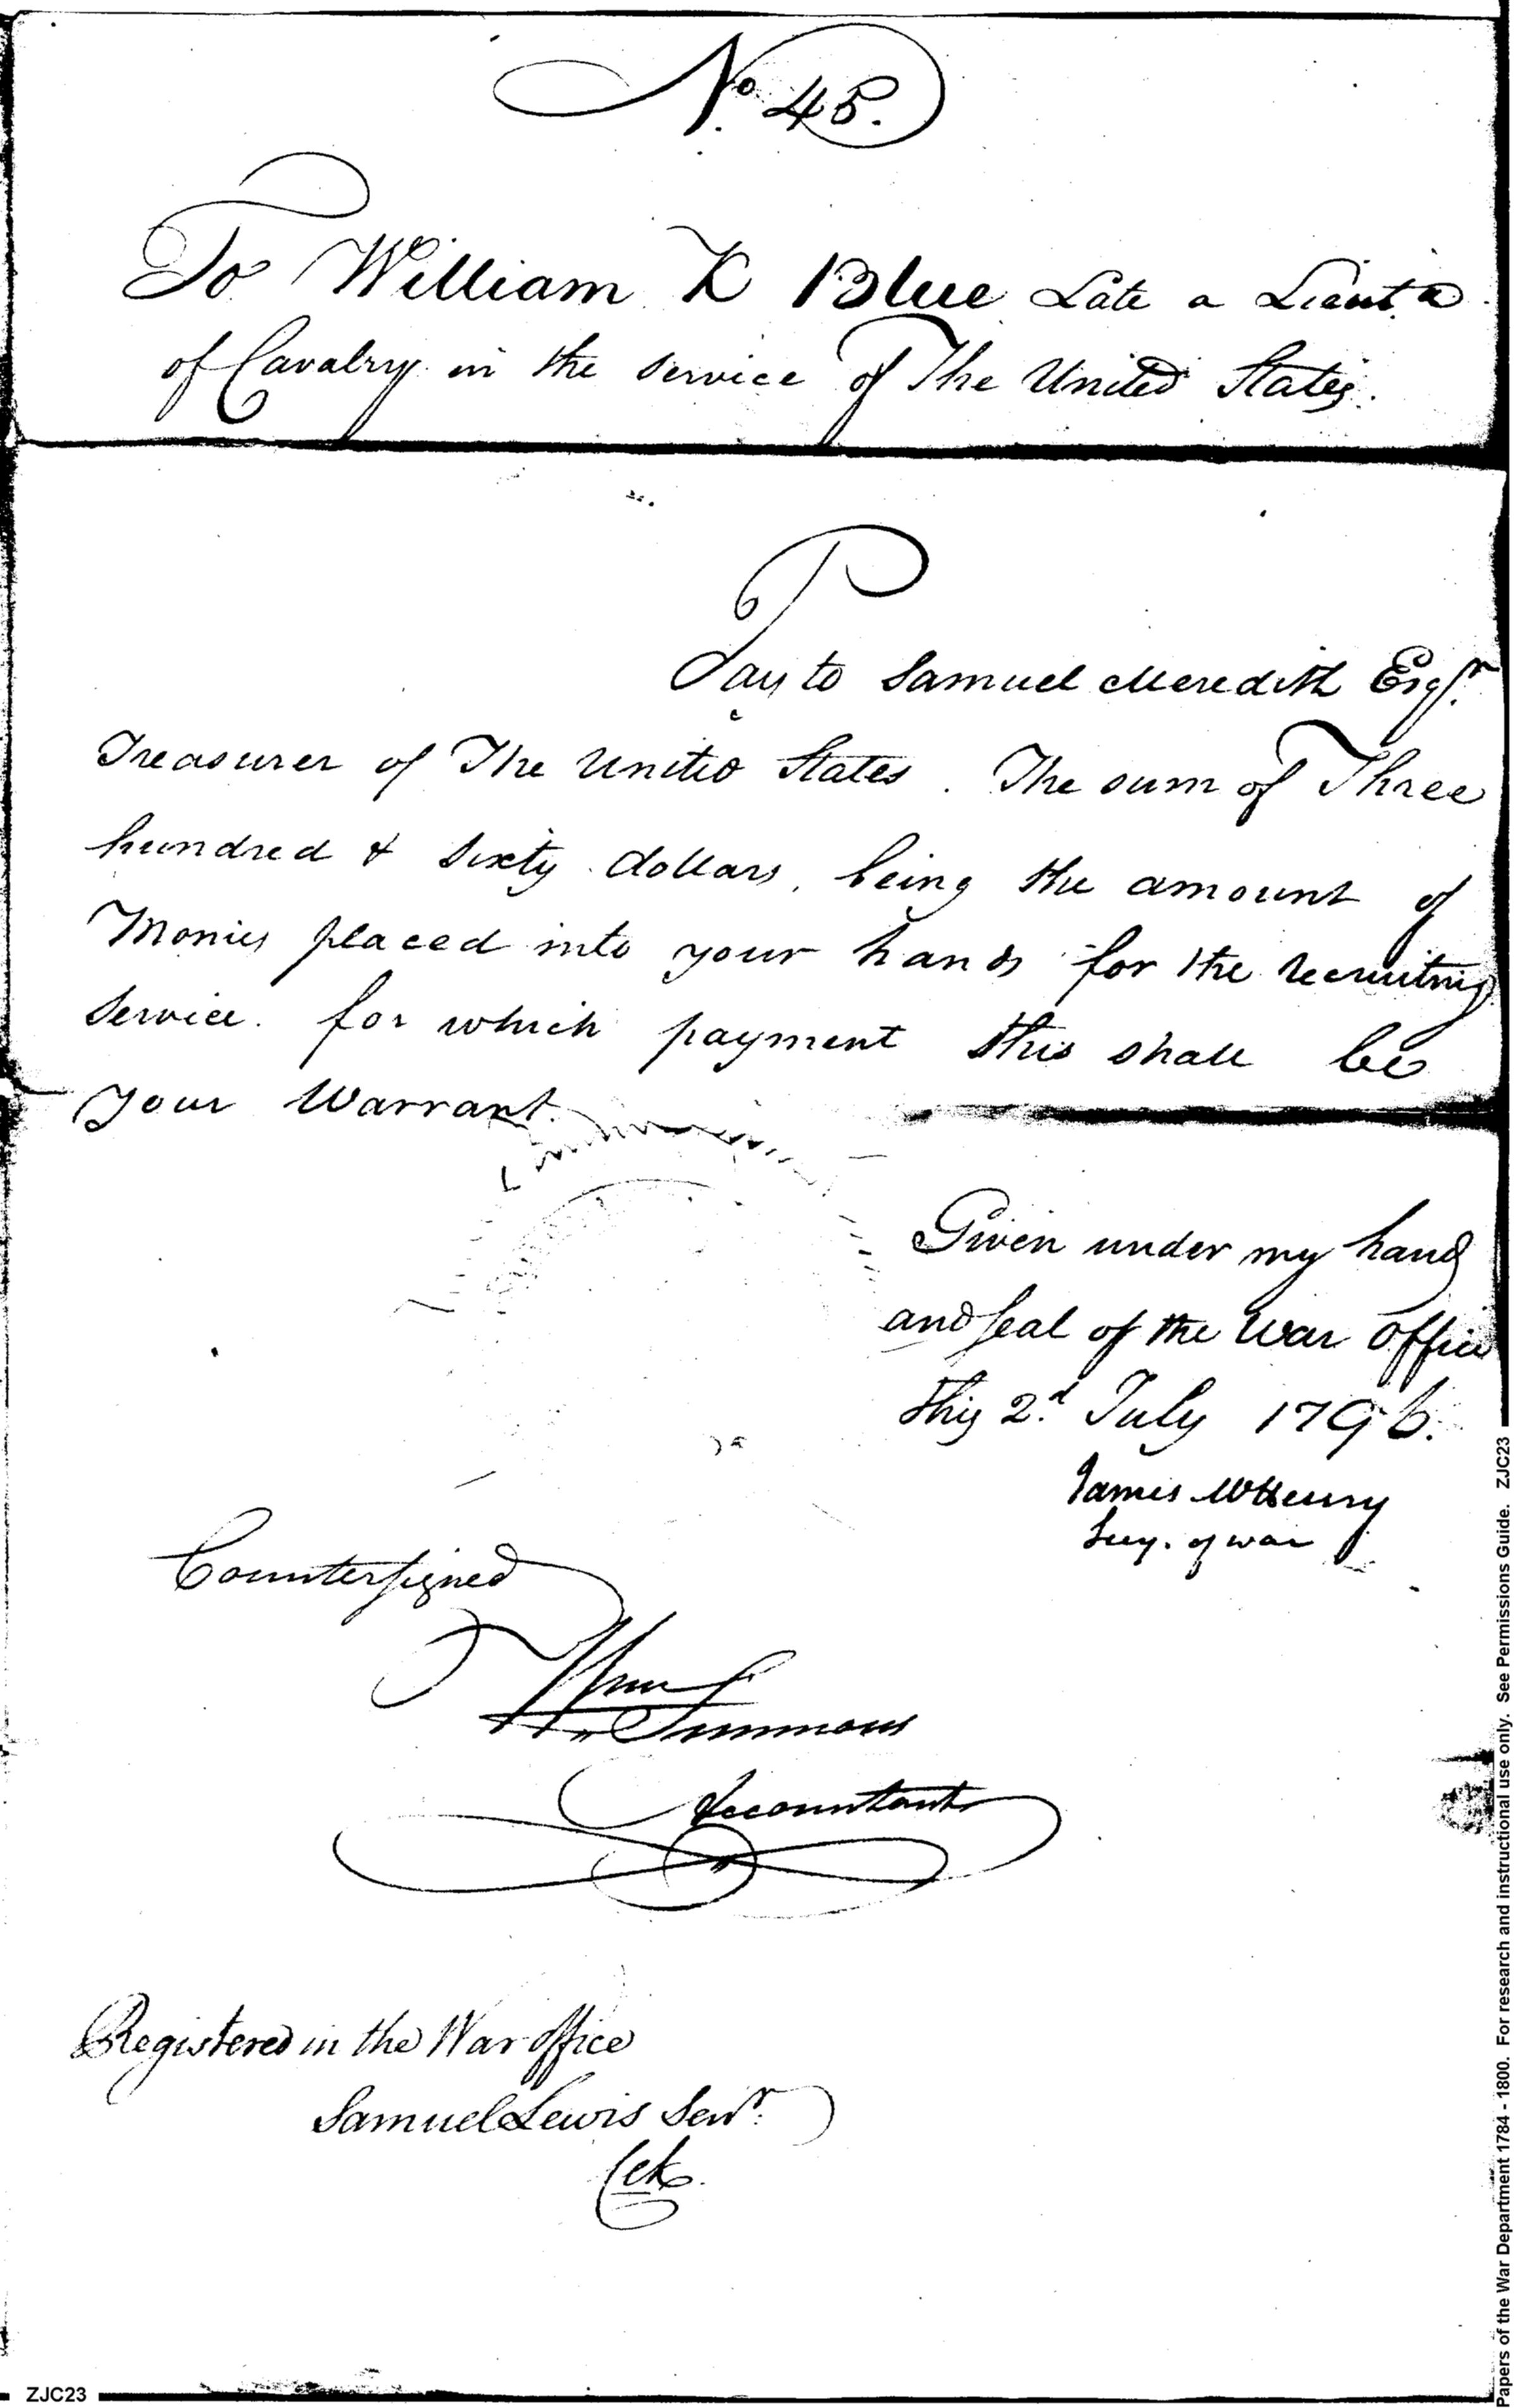 No. 45.
To William K Blue Late a Lieut.
of Cavalry in the service of The United States.
Pay to Samuel Meredith Esqr.
Treasurer of The United States. The sum of Three
hundred & Sixty dollars, being the amount of
Monies placed into your hands for the recruiting
Service. for which payment this shall be
your Warrant.
Given under my hand
and seal of the War Office
this 2d. July 1796.
James McHenry
Secy. of war
Countersigned
Wm Simmons
Accountant
Registered in the War office
Samuel Lewis Senr.
Clk.
ZJC23
Papers of the War Department 1784 - 1800. For research and instructional use only. See Permissions Guide. ZJC23